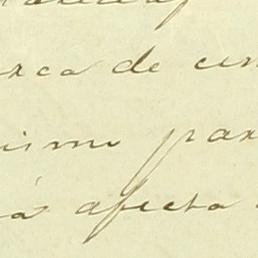 rca de cen
ismo par
á afecta